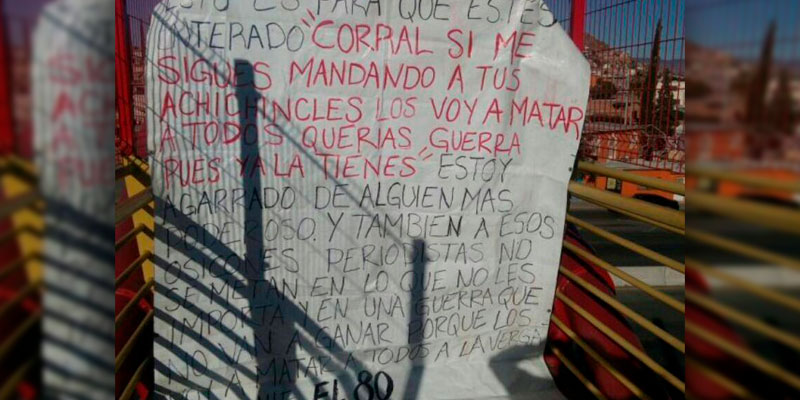 ESTO ES PARA QUE ESTES
ENTERADO "CORRAL SI ME
SIGUES MANDANDO A TUS
ACHICHINCLES LOS VOY A MATAR
A TODOS QUERIAS GUERRA
PUES YA LA TIENES" ESTOY
AGARRADO DE ALGUIEN MAS
PODEROSO. Y TAMBIEN A ESOS
OSICONES PERIODISTAS NO
SE METAN EN LO QUE NO LES
IMPORTA Y EN UNA GUERRA QUE
NO VAN A GANAR PORQUE LOS
VOY A MATAR A TODOS A LA VERGA
EL 80